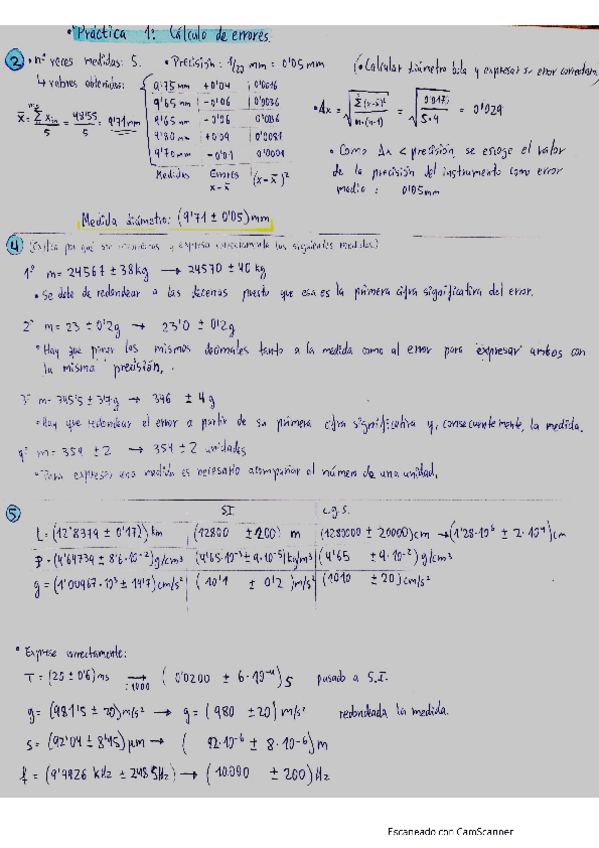 • Práctica 1: Cálculo de errores.
② • nº veces medidas: 5. • Precisión: 1/20 mm = 0'05 mm (• Calcular diámetro bola y expresar su error correctam.
↳ valores obtenidos:
9.75 mm +0'04 0'0016
9'65 mm -0'06 0'0036
9'65 mm -0'06 0'0036
9'80 mm +0.09 0'0081
9'70 mm -0'01 0'0001
Medidas Errores x-x̄ (x-x̄)²
x̄ = Σ xᵢₙ / 5 = 48'55 / 5 = 9'71 mm
• Δx = √(Σ(x-x̄)² / n·(n-1)) = √(0'017 / 5·4) = 0'029
• Como Δx < precisión, se escoge el valor
de la precisión del instrumento como error
medio: 0'05 mm
Medida diámetro: (9'71 ± 0'05) mm
④ (Explica por qué son incorrectas y expresa correctamente las siguientes medidas)
1º m = 24567 ± 38 kg → 24570 ± 40 kg
• Se debe de redondear a las decenas puesto que esa es la primera cifra significativa del error.
2º m = 23 ± 0'2 g → 23'0 ± 0'2 g
• Hay que poner los mismos decimales tanto a la medida como al error para expresar ambos con
la misma precisión.
3º m = 345'5 ± 3'7 g → 346 ± 4 g
• Hay que redondear el error a partir de su primera cifra significativa y, consecuentemente, la medida.
4º m = 354 ± 2 → 354 ± 2 unidades
• Para expresar una medida es necesario acompañar el número de una unidad.
⑤ SI c.g.s.
L = (12'8379 ± 0'172) km (12800 ± 200) m (1280000 ± 20000) cm → (1'28·10⁶ ± 2·10⁴) cm
ρ = (4'64739 ± 8'6·10⁻²) g/cm³ (4'65·10⁻³ ± 9·10⁻⁵) kg/m³ (4'65 ± 9·10⁻²) g/cm³
g = (1'00967·10³ ± 19'7) cm/s² (10'1 ± 0'2) m/s² (1010 ± 20) cm/s²
• Exprese correctamente:
T = (20 ± 0'6) ms → :1000 (0'0200 ± 6·10⁻⁴) s pasado a S.I.
g = (981'5 ± 20) m/s² → g = (980 ± 20) m/s² redondeada la medida.
s = (92'04 ± 8'45) μm → (92·10⁻⁶ ± 8·10⁻⁶) m
f = (9'9826 kHz ± 248.5 Hz) → (10.000 ± 200) Hz
Escaneado con CamScanner